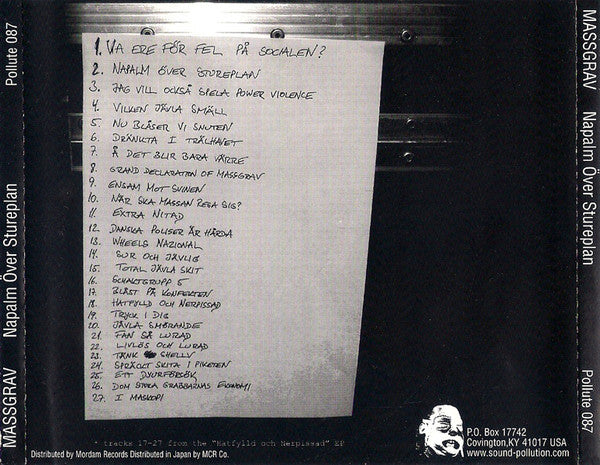 MASSGRAV Napalm Över Stureplan Pollute 087
1. VA ERE FÖR FEL PÅ SOCIALEN?
2. NAPALM ÖVER STUREPLAN
3. JAG VILL OCKSÅ SPELA POWER VIOLENCE
4. VILKEN JÄVLA SMÄLL
5. NU BLÅSER VI SNUTEN
6. DRÄNKTA I TRÄLHAVET
7. Å DET BLIR BARA VÄRRE
8. GRAND DECLARATION OF MASSGRAV
9. ENSAM MOT SVINEN
10. NÄR SKA MASSAN RESA SIG?
11. EXTRA NITAD
12. DANSKA POLISER ÄR HÅRDA
13. WHEELS NAZIONAL
14. SUR OCH JÄVLIG
15. TOTAL JÄVLA SKIT
16. SCHAKTGRUPP 5
17. BLÅST PÅ KONFEKTEN
18. HATFYLLD OCH NERPISSAD
19. TRYCK I DIG
20. JÄVLA SMÖRANDE
21. FAN SÅ LURAD
22. LIVLÖS OCH LURAD
23. TÄNK SHELLV
24. SPRÄCKT SKITA I PIKETEN
25. ETT DJURFÖRSÖK
26. DOM STORA GRABBARNAS EKONOMI
27. I MASKOPI
* tracks 17-27 from the "Hatfylld och Nerpissad" EP
Distributed by Mordam Records Distributed in Japan by MCR Co.
P.O. Box 17742
Covington,KY 41017 USA
www.sound-pollution.com
MASSGRAV Napalm Över Stureplan Pollute 087